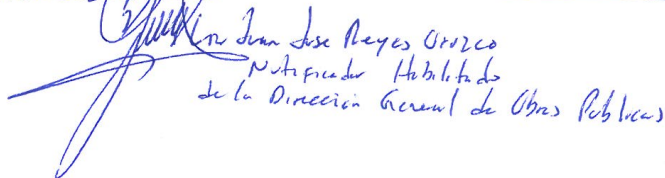 Juan Jose Reyes Orozco
Notificador Habilitado
de la Dirección General de Obras Publicas